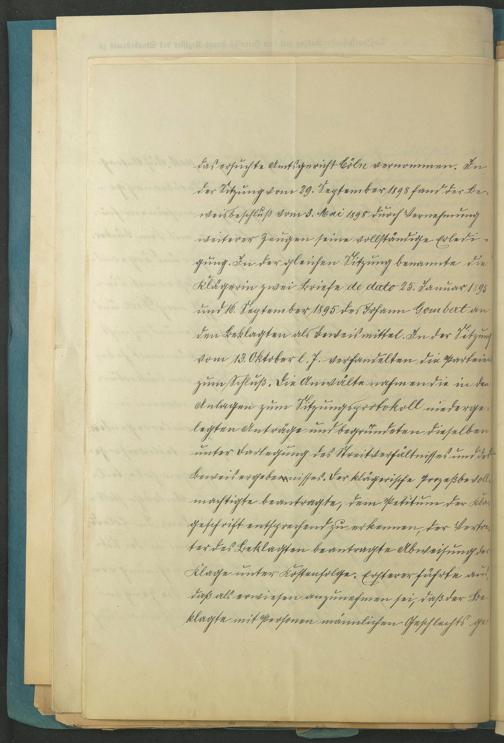 das ersuchte Amtsgericht Cöln vernommen. In
der Sitzung vom 29. September 1898 fand der Be-
weisbeschluß vom 3. Mai 1898 durch Vernehmung
weiterer Zeugen seine vollständige Erledi-
gung. In der gleichen Sitzung benannte die
Klägerin zwei Briefe de dato 25. Januar 1895
und 16. September 1895 des Johann Gombert an
den Beklagten als Beweismittel. In der Sitzung
vom 13. Oktober l. J. verhandelten die Parteien
zum Schluß. Die Anwälte nahmen die in den
Anlagen zum Sitzungsprotokoll niederge-
legten Anträge und begründeten dieselben
unter Darlegung des Streitverhältnisses und des
Beweisergebnisses. Der klägerische Prozeßbevoll-
mächtigte beantragte, dem Petitum der Kla-
geschrift entsprechend zu erkennen, der Vertre-
ter des Beklagten beantragte Abweisung der
Klage unter Kostenfolge. Ersterer führte aus,
daß als erwiesen anzunehmen sei, daß der Be-
klagte mit Personen männlichen Geschlechts ge